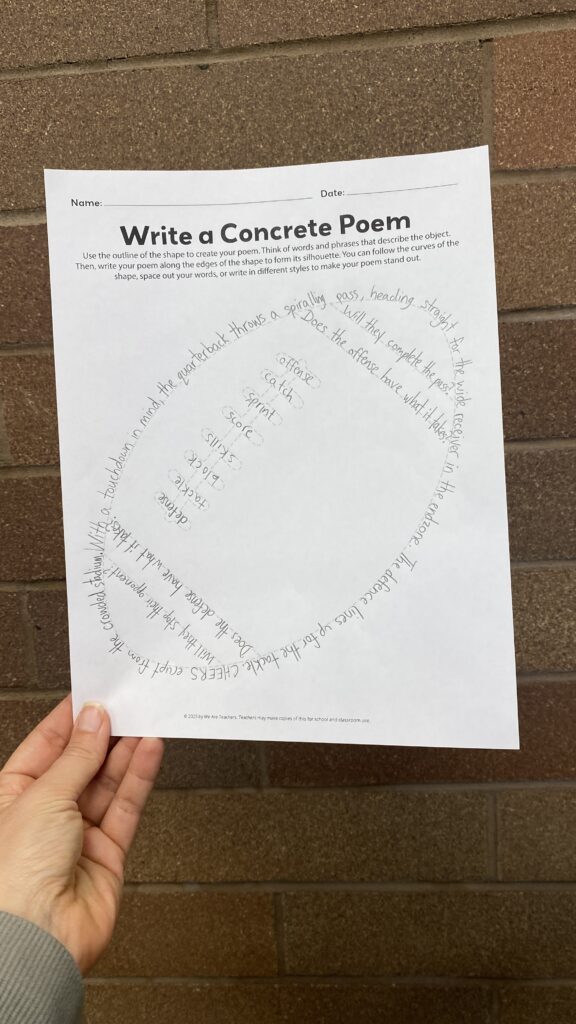 Name:
Date:
Write a Concrete Poem
Use the outline of the shape to create your poem. Think of words and phrases that describe the object.
Then, write your poem along the edges of the shape to form its silhouette. You can follow the curves of the
shape, space out your words, or write in different styles to make your poem stand out.
With a touchdown in mind, the quarterback throws a spiralling pass, heading straight for the wide receiver in the endzone. The defence lines up for the tackle. CHEERS erupt from the crowded stadium.
Will they complete the pass?
Does the offense have what it takes?
offense
catch
sprint
score
skills
block
tackle
defense
Does the defense have what it takes?
Will they stop their opponent?
© 2025 by We Are Teachers. Teachers may make copies of this for school and classroom use.